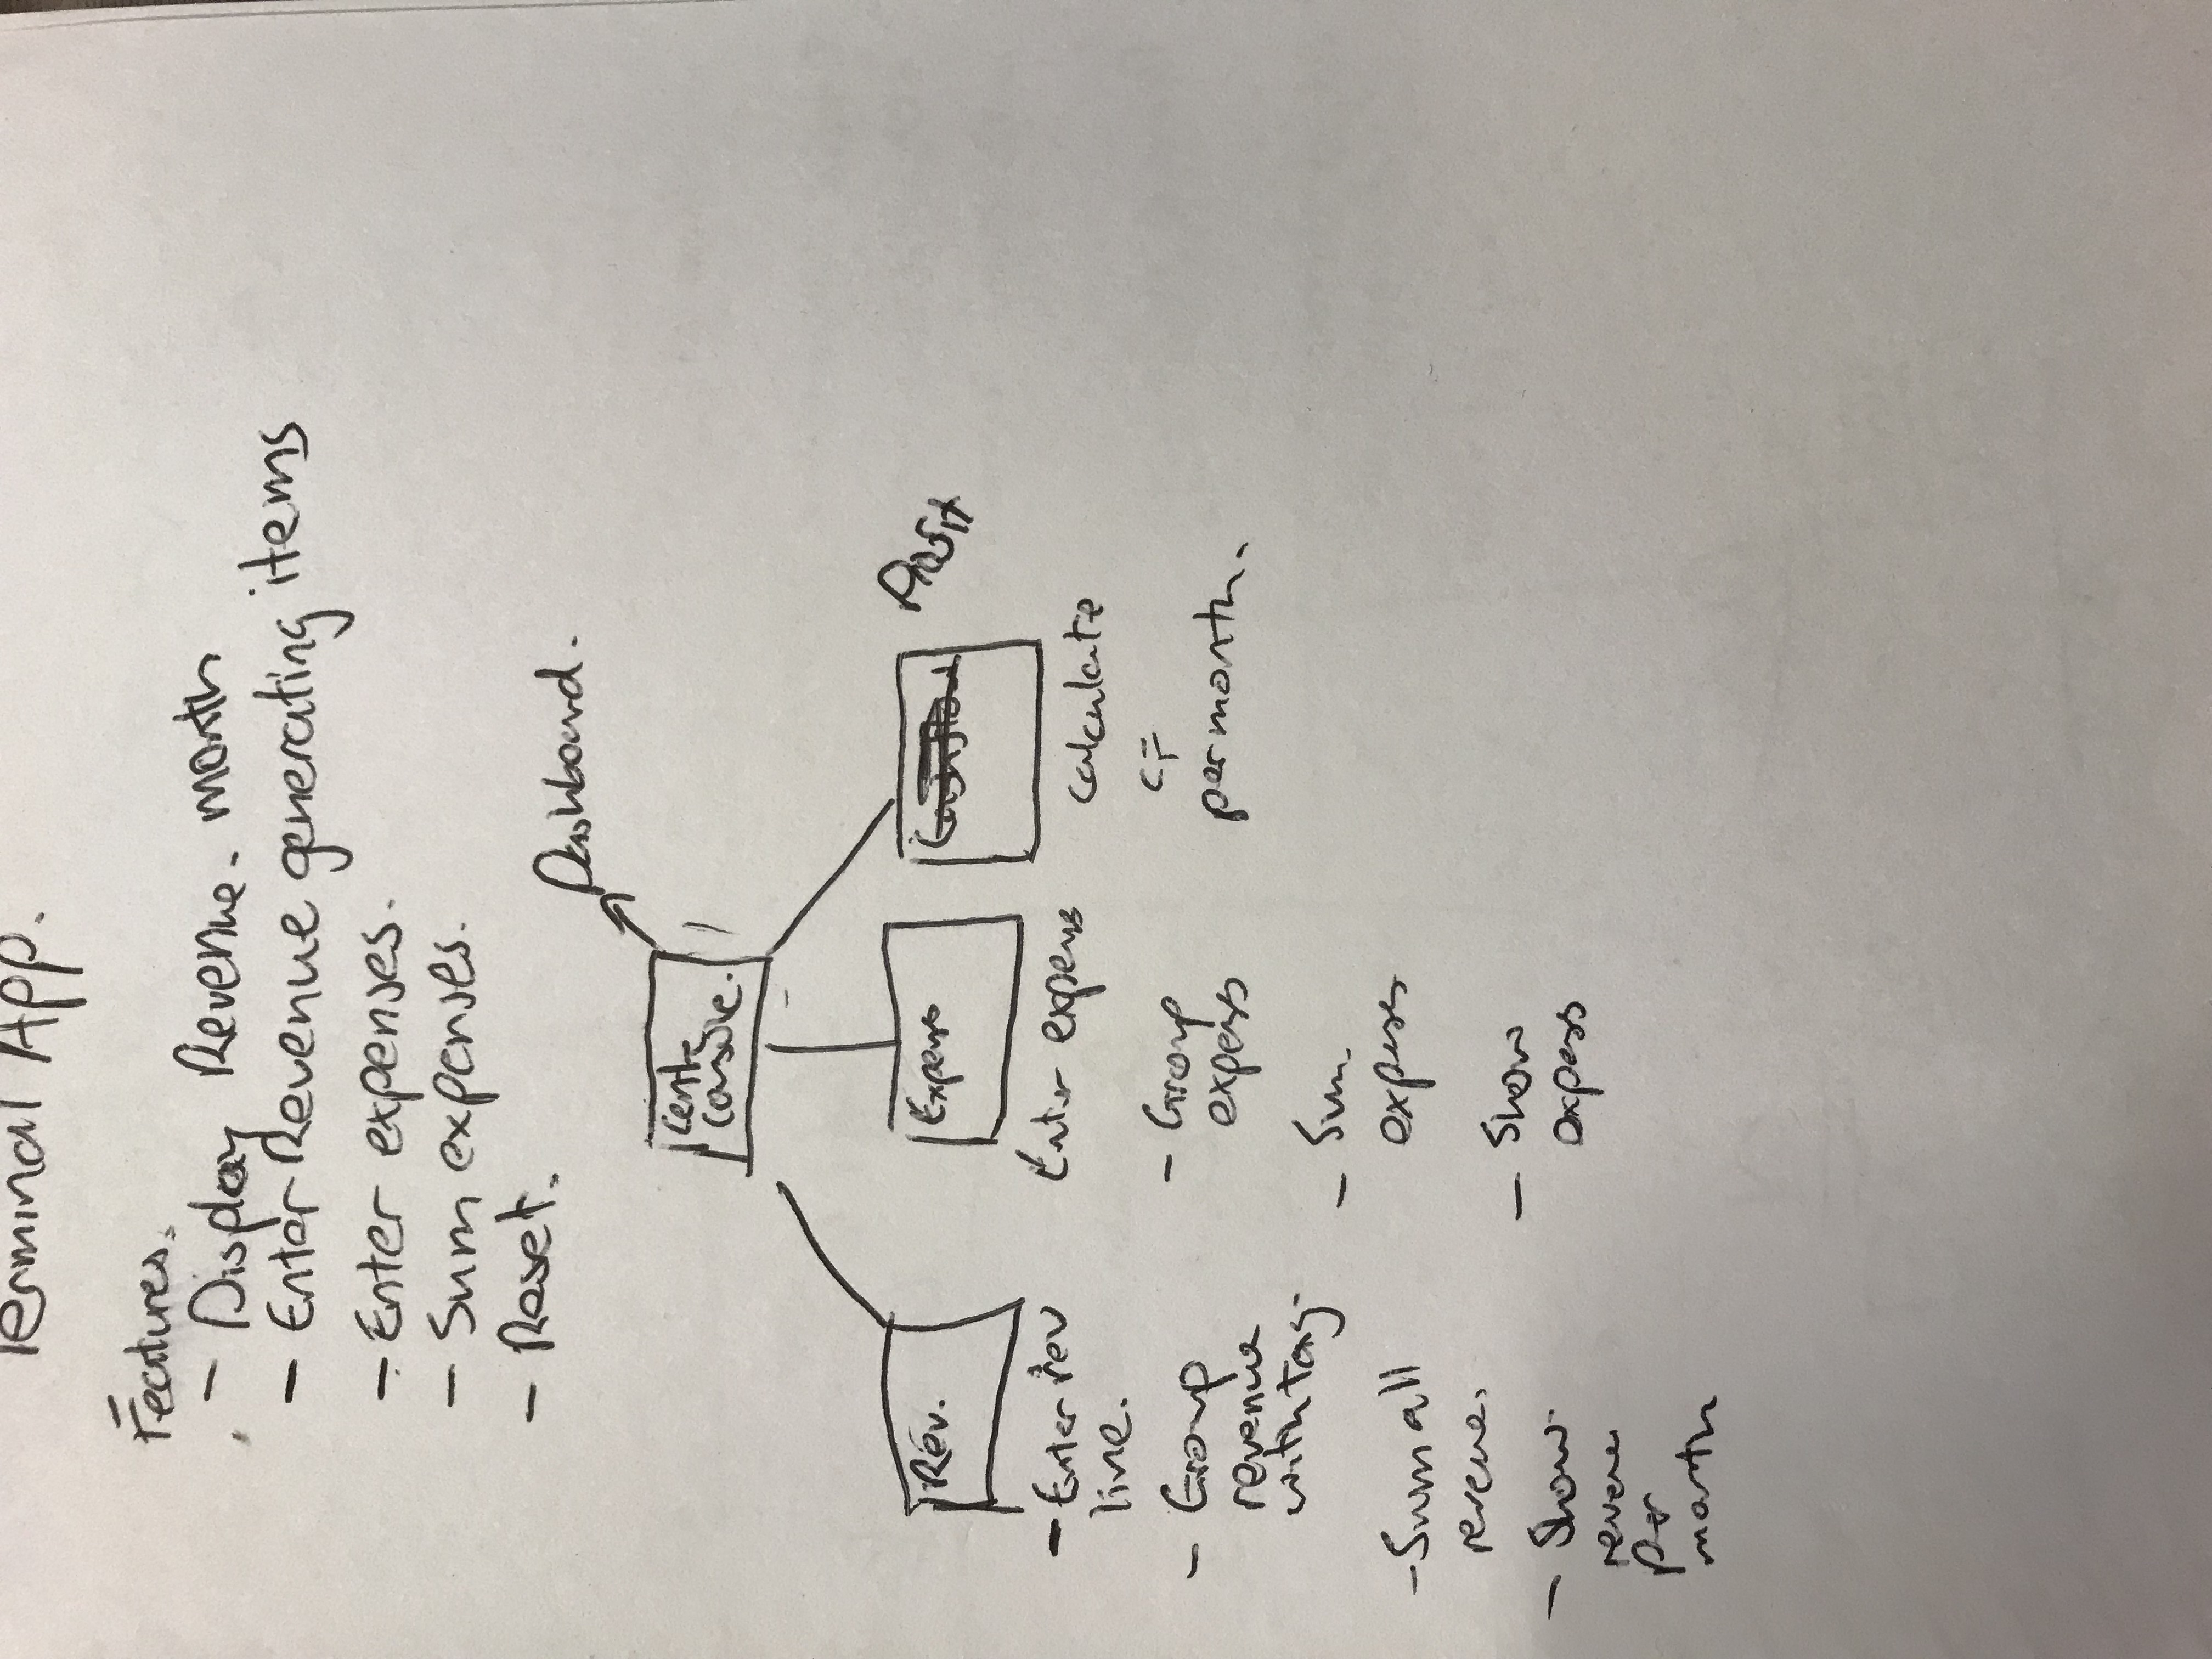 Terminal App.
Features.
- Display Revenue. month
- Enter Revenue generating items
- Enter expenses.
- Sum expenses.
- Reset.
Dashboard.
Centre
console.
Rev.
- Enter rev
line.
- Group
revenue
with tag.
- Sum all
revenue.
- Show
revenue
per
month
Expenses
Enter expenses
- Group
expenses
- Sum
expenses
- Show
expenses
Cashflow
Profit
calculate
CF
per month.